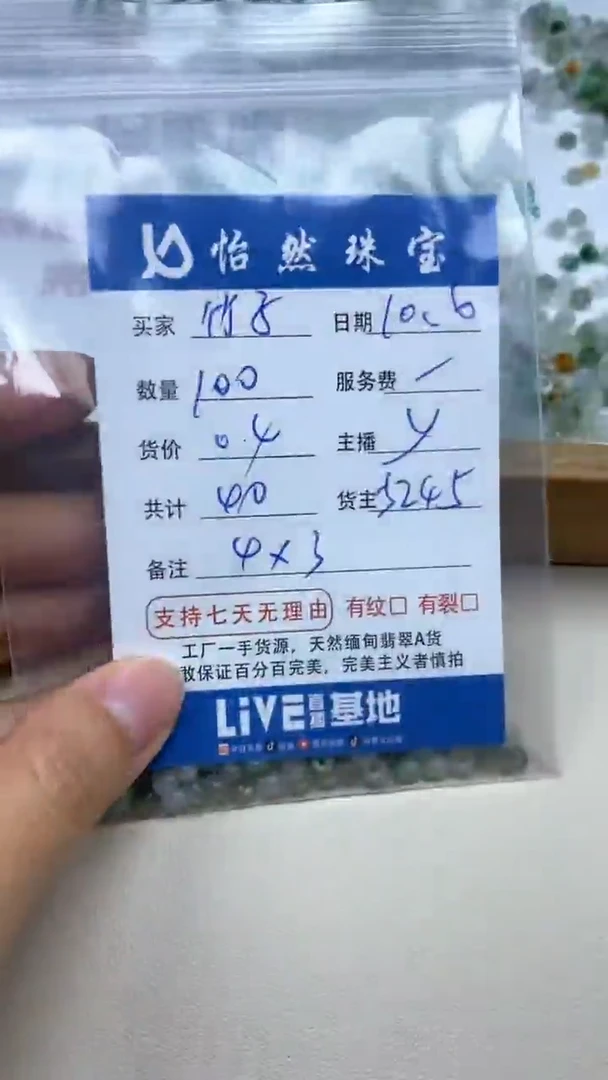 怡然珠宝
买家 竹子 日期 10.6
数量 100 服务费 /
货价 0.4 主播 y
共计 40 货主 5245
备注 4×3
支持七天无理由 有纹□ 有裂□
工厂一手货源，天然缅甸翡翠A货
敢保证百分百完美，完美主义者慎拍
LiVE直播基地